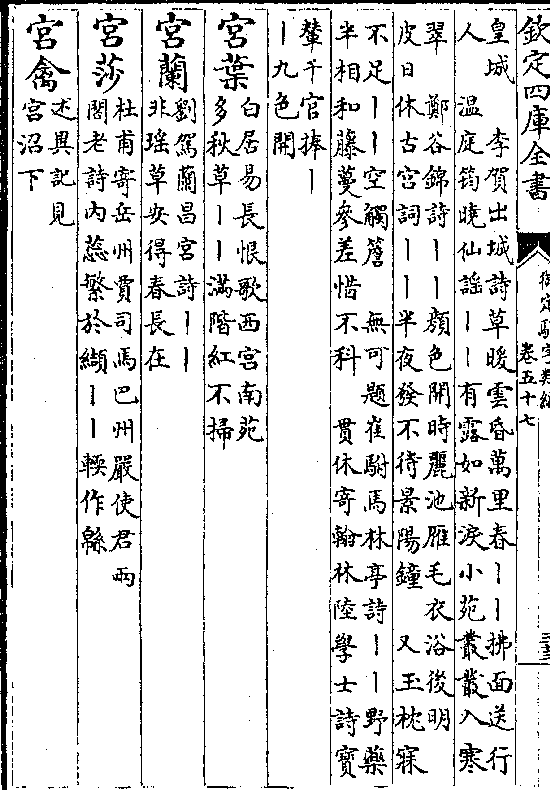 欽定四庫全書
御定駢字類編
卷五十七
皇城 李賀出城詩草暖雲昏萬里春丨丨拂面送行
人 溫庭筠曉仙謡丨丨有露如新淚小苑叢叢入寒
翠 鄭谷錦詩丨丨顔色開時麗池雁毛衣浴後明
皮日休古宮詞丨丨半夜發不待景陽鐘 又玉枕寐
不足丨丨空觸簷 無可題崔駙馬林亭詩丨丨野藥
半相和藤蔓參差惜不科 貫休寄翰林陸學士詩寶
輦千官捧丨
丨九色開
宮葉
白居易長恨歌西宮南苑
多秋草丨丨滿階紅不掃
宮蘭
劉駕蘭昌宮詩丨丨
非瑤草安得春長在
宮莎
杜甫寄岳州賈司馬巴州嚴使君兩
閣老詩内蕊繁於纈丨丨輭作緜
宮禽
述異記見
宮沼下